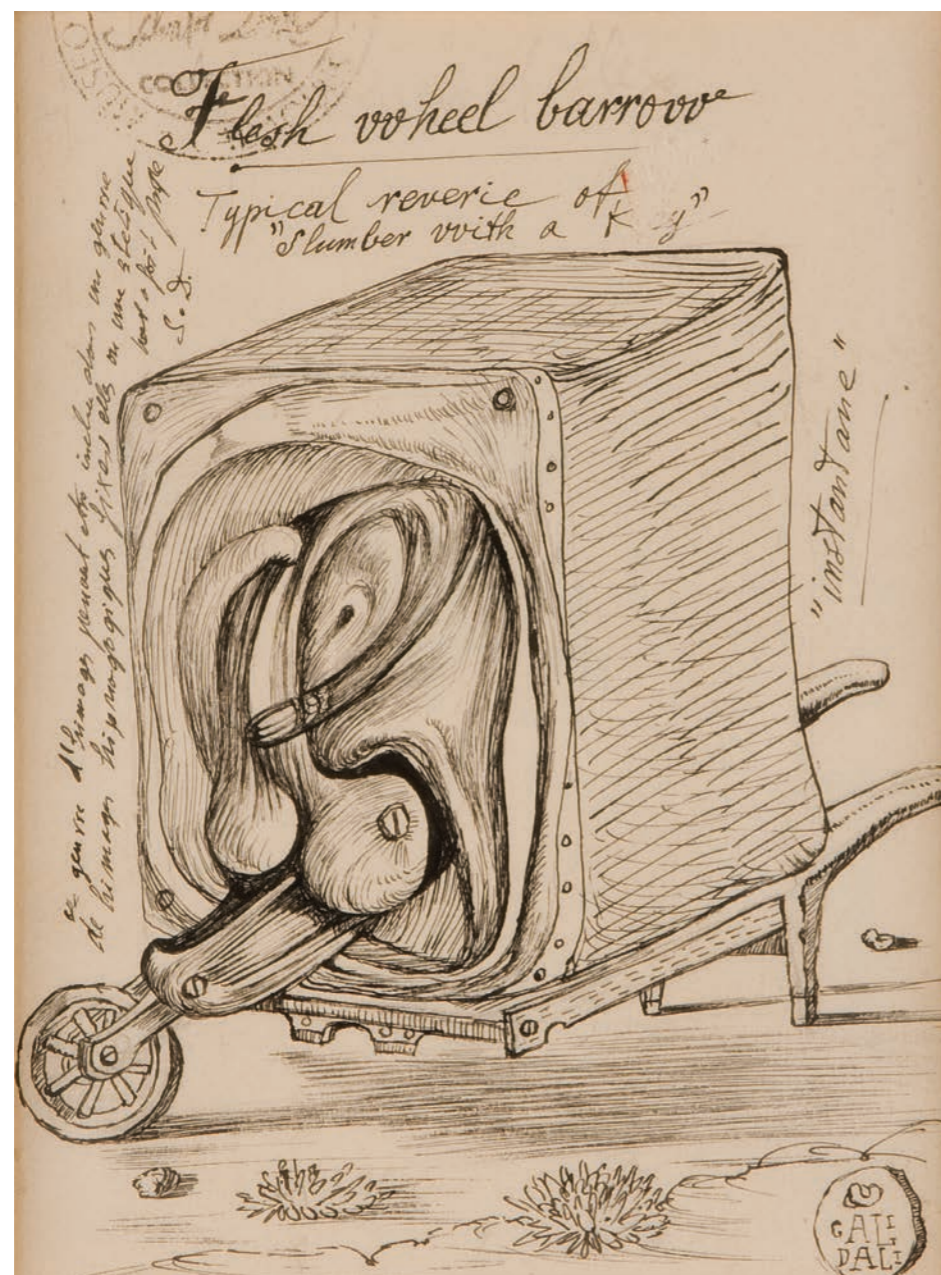 COLLECTION
Flesh wheel barrow
Typical reverie of
"Slumber with a K y"
ce genre d'images peuvent etre inclus dans un genre
de himages hipnagogiques fixes ells on une
S. D.
"instantane"
GALI
DALI